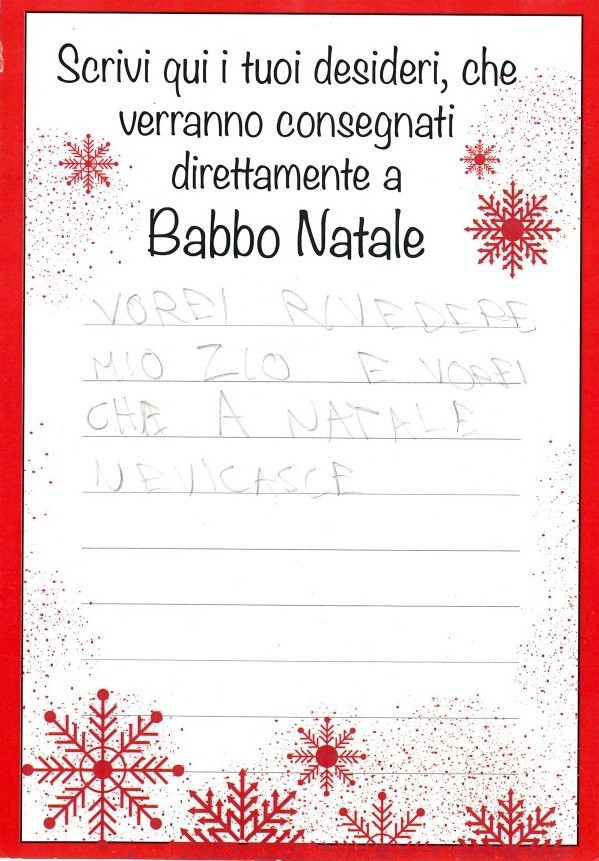 Scrivi qui i tuoi desideri, che
verranno consegnati
direttamente a
Babbo Natale
VOREI RIVEDERE
MIO ZIO E VOREI
CHE A NATALE
NEVICASCE